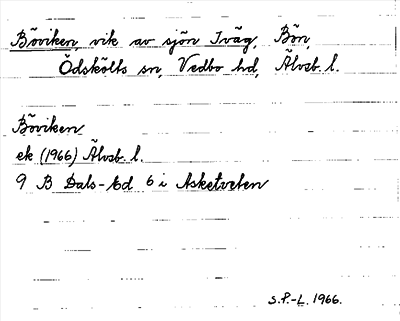 Böviken, vik av sjön Iväg, Bön,
Ödskölts sn, Vedbo hd, Älvsb. l.
Böviken
ek (1966) Älvsb. l.
9 B Dals-Ed 6 i Asketveten
S.P.-L. 1966.